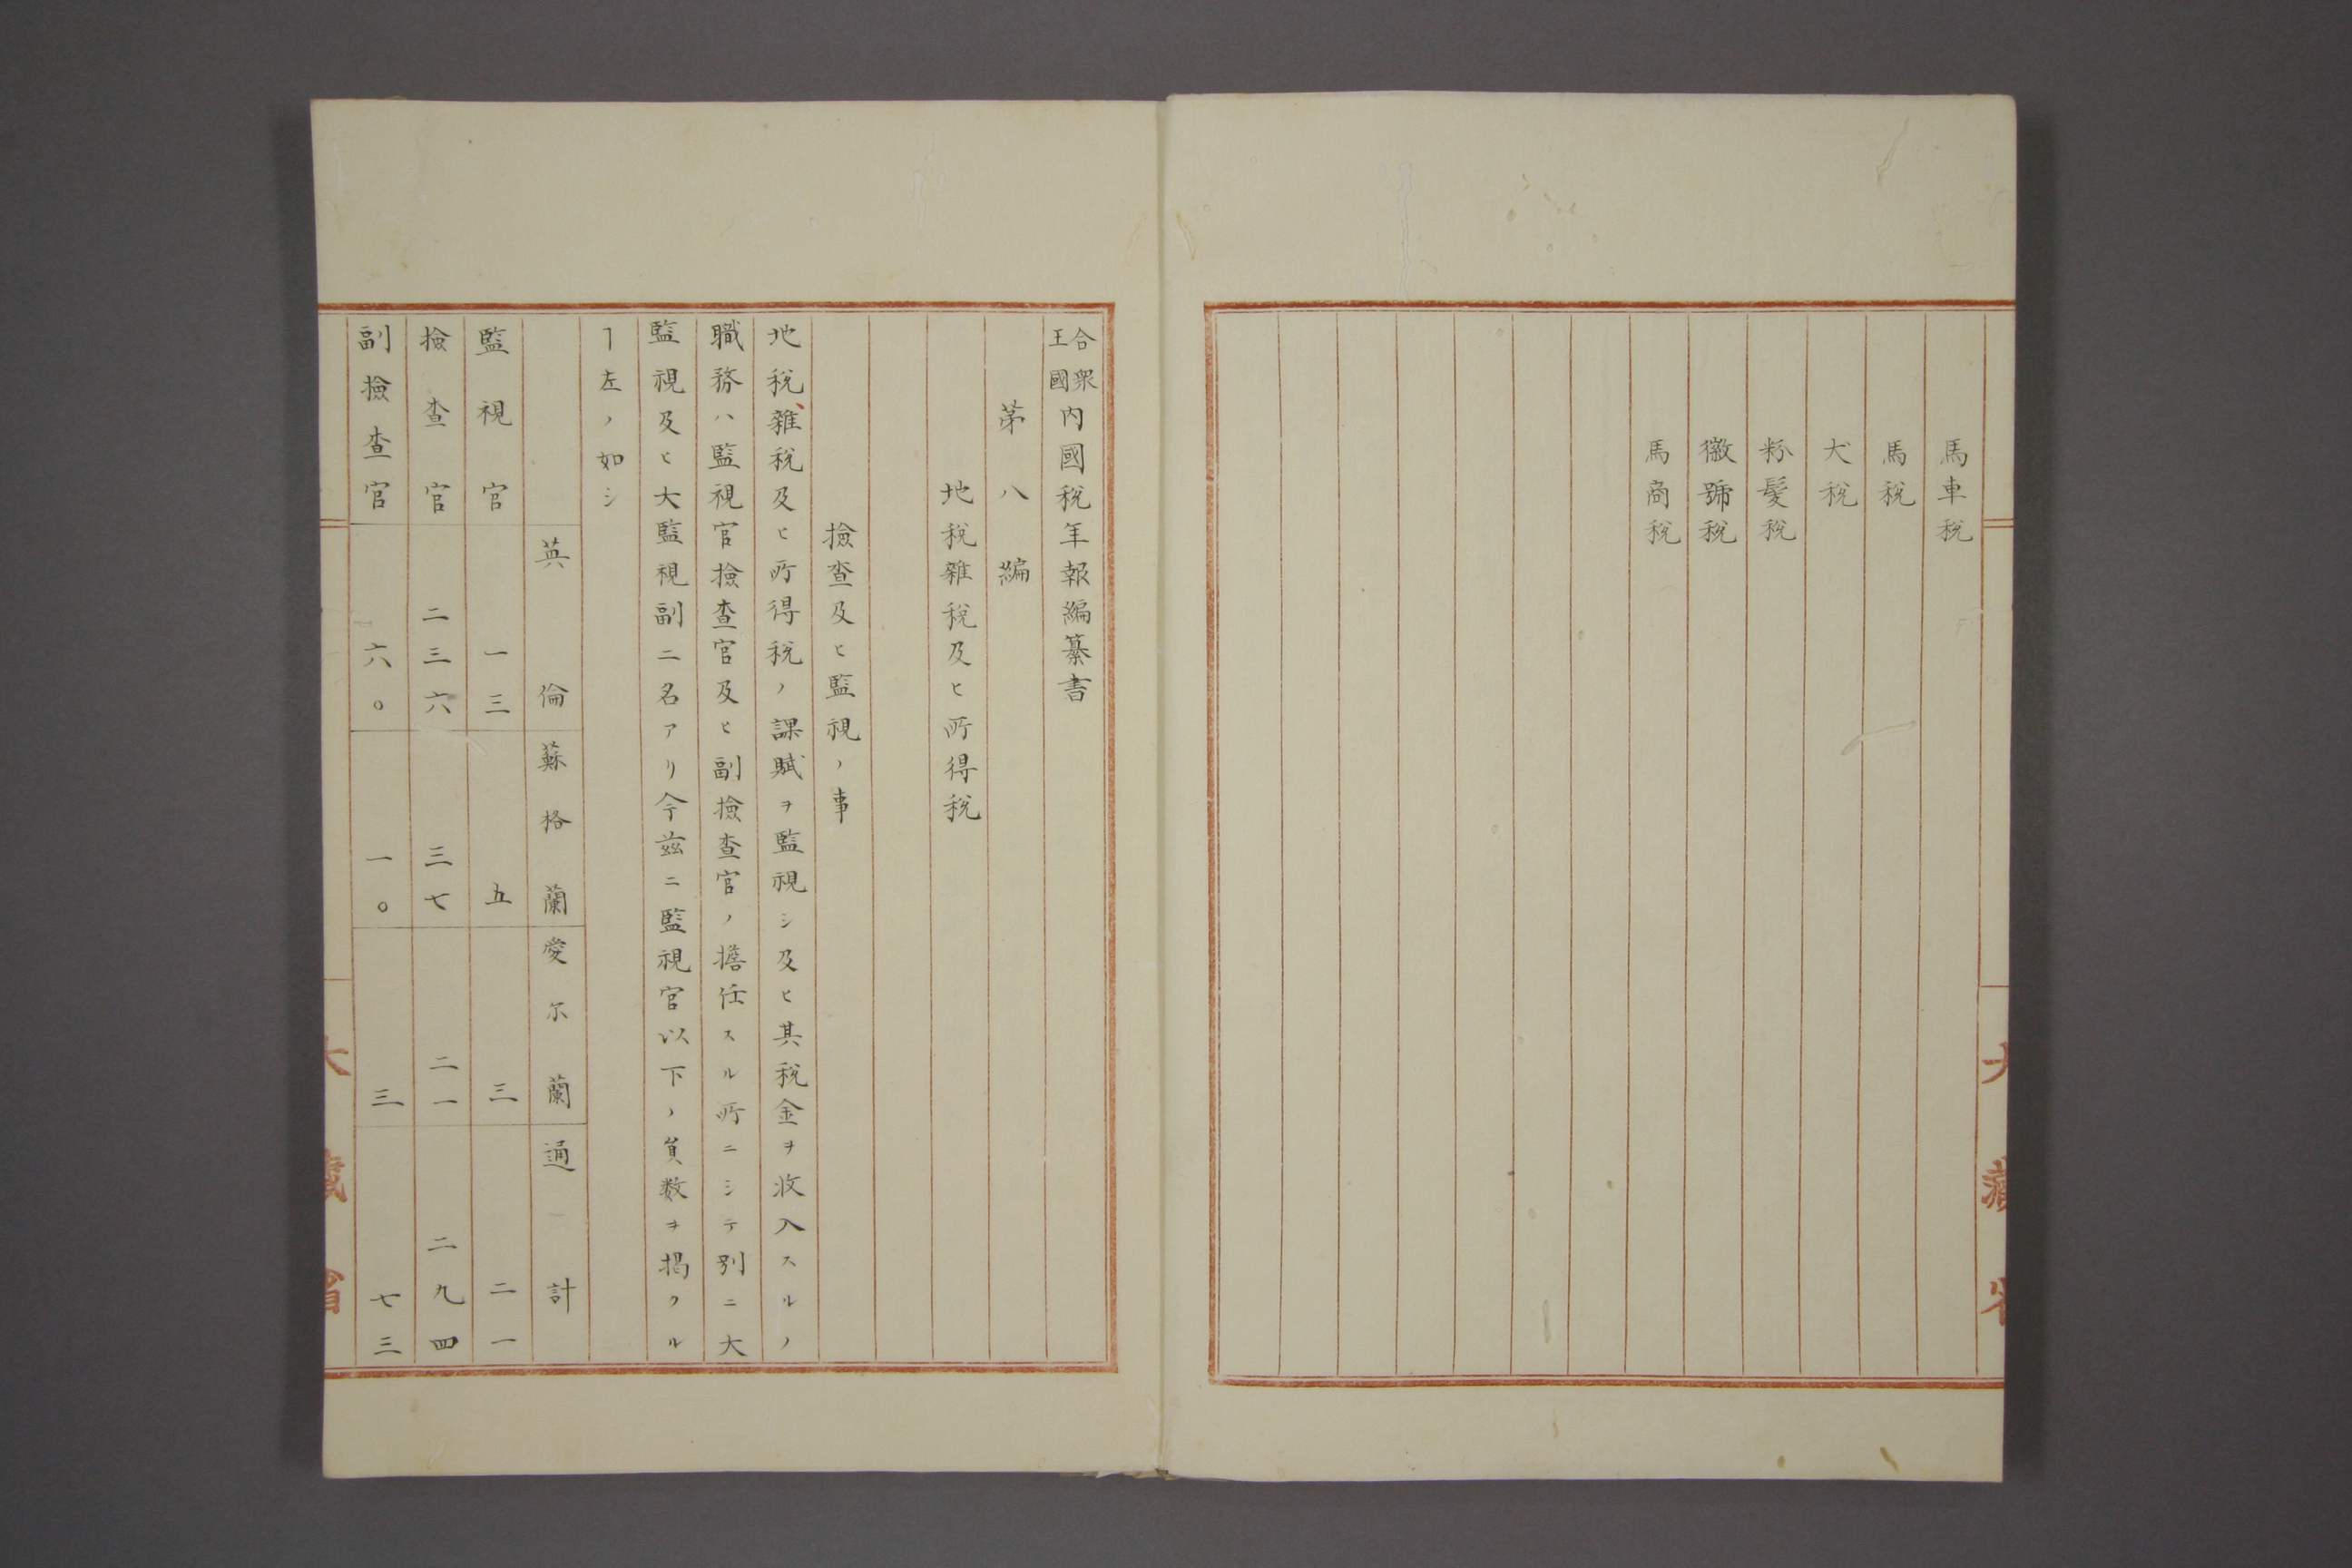 馬車税
馬税
犬税
粉髪税
徽號税
馬商税
大藏省
合衆王國内國税年報編纂書
苐八編
地税雜税及ヒ所得税
撿査及ヒ監視ノ事
地税、雜税及ヒ所得税ノ課賦ヲ監視シ及ヒ其税金ヲ收入スルノ
職務ハ監視官撿査官及ヒ副撿査官ノ擔任スル所ニシテ別ニ大
監視及ヒ大監視副二名アリ今茲ニ監視官以下ノ貟数ヲ掲クル
ヿ左ノ如シ
英倫 蘇格蘭 愛尓蘭 通計
監視官 一三 五 三 二一
撿査官 二三六 三七 二一 二九四
副撿査官 六〇 一〇 三 七三
大藏省